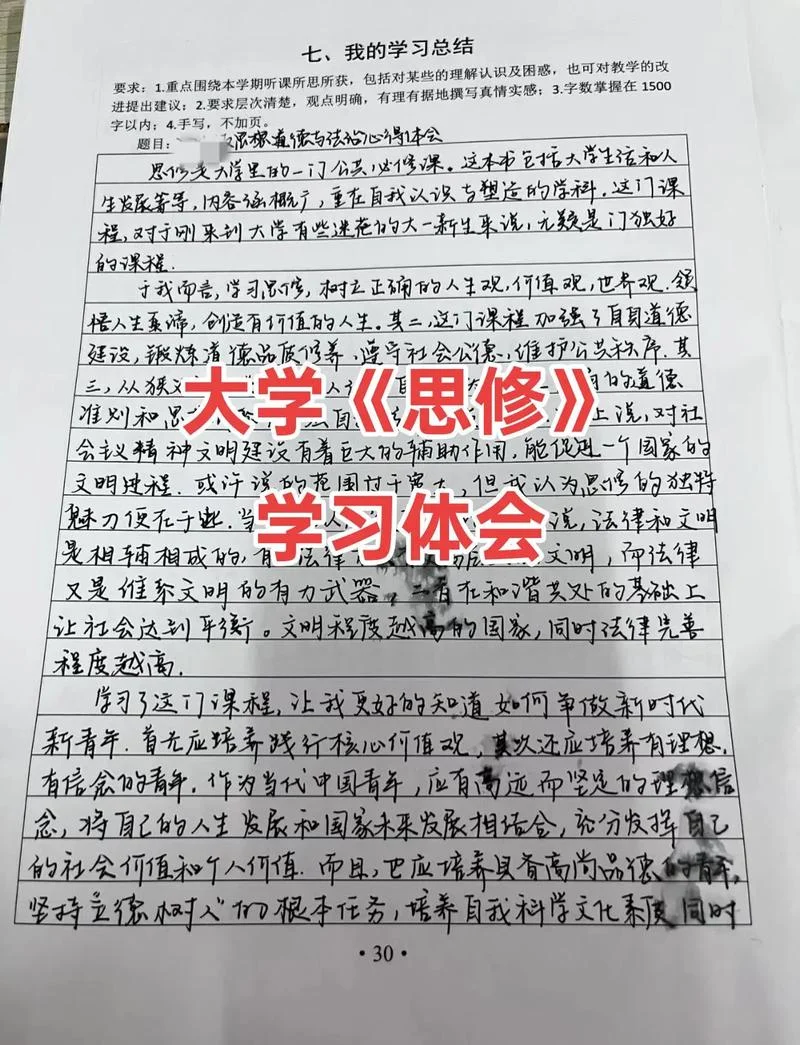 七、我的学习总结
要求：1.重点围绕本学期听课所思所获，包括对某些的理解认识及困惑，也可对教学的改
进提出建议；2.要求层次清楚，观点明确，有理有据地撰写真情实感；3.字数掌握在1500
字以内；4.手写，不加页。
题目： 思想道德与法治心得体会
思修是大学里的一门公共必修课。这本书包括大学生活和人
生发展等等，内容涵概广，重在自我认识与塑造的学科。这门课
程，对于刚来到大学有些迷茫的大一新生来说，无疑是门独好
的课程.
于我而言，学习思修，树立正确的人生观，价值观，世界观.领
悟人生真谛，创造有价值的人生。其二，这门课程加强了自身道德
建设，锻炼道德品质修养，遵守社会公德，维护公共秩序.其
三，从狭 人 自 的道德
大学《思修》
准则和思 自 上说，对社
会主义精神文明建设有着巨大的辅助作用，能促进一个国家的
文明进程.或许说的范围过于宽大，但我认为思修的独特
魅力便在于此.当 人 说，法律和文明
学习体会
是相辅相成的，有 法律 文明，而法律
又是维系文明的有力武器，二者在和谐共处的基础上
让社会达到平衡。文明程度越高的国家，同时法律完善
程度越高.
学习了这门课程，让我更好的知道如何争做新时代
新青年.首先应培养践行核心价值观，其次还应培养有理想，
有信念的青年.作为当代中国青年，应有高远而坚定的理想信
念，将自己的人生发展和国家未来发展相结合，充分发挥自己
的社会价值和个人价值.而且，也应培养具备高尚品德的青年，
坚持立德树人的根本任务，培养自我科学文化素质 同时
·30·